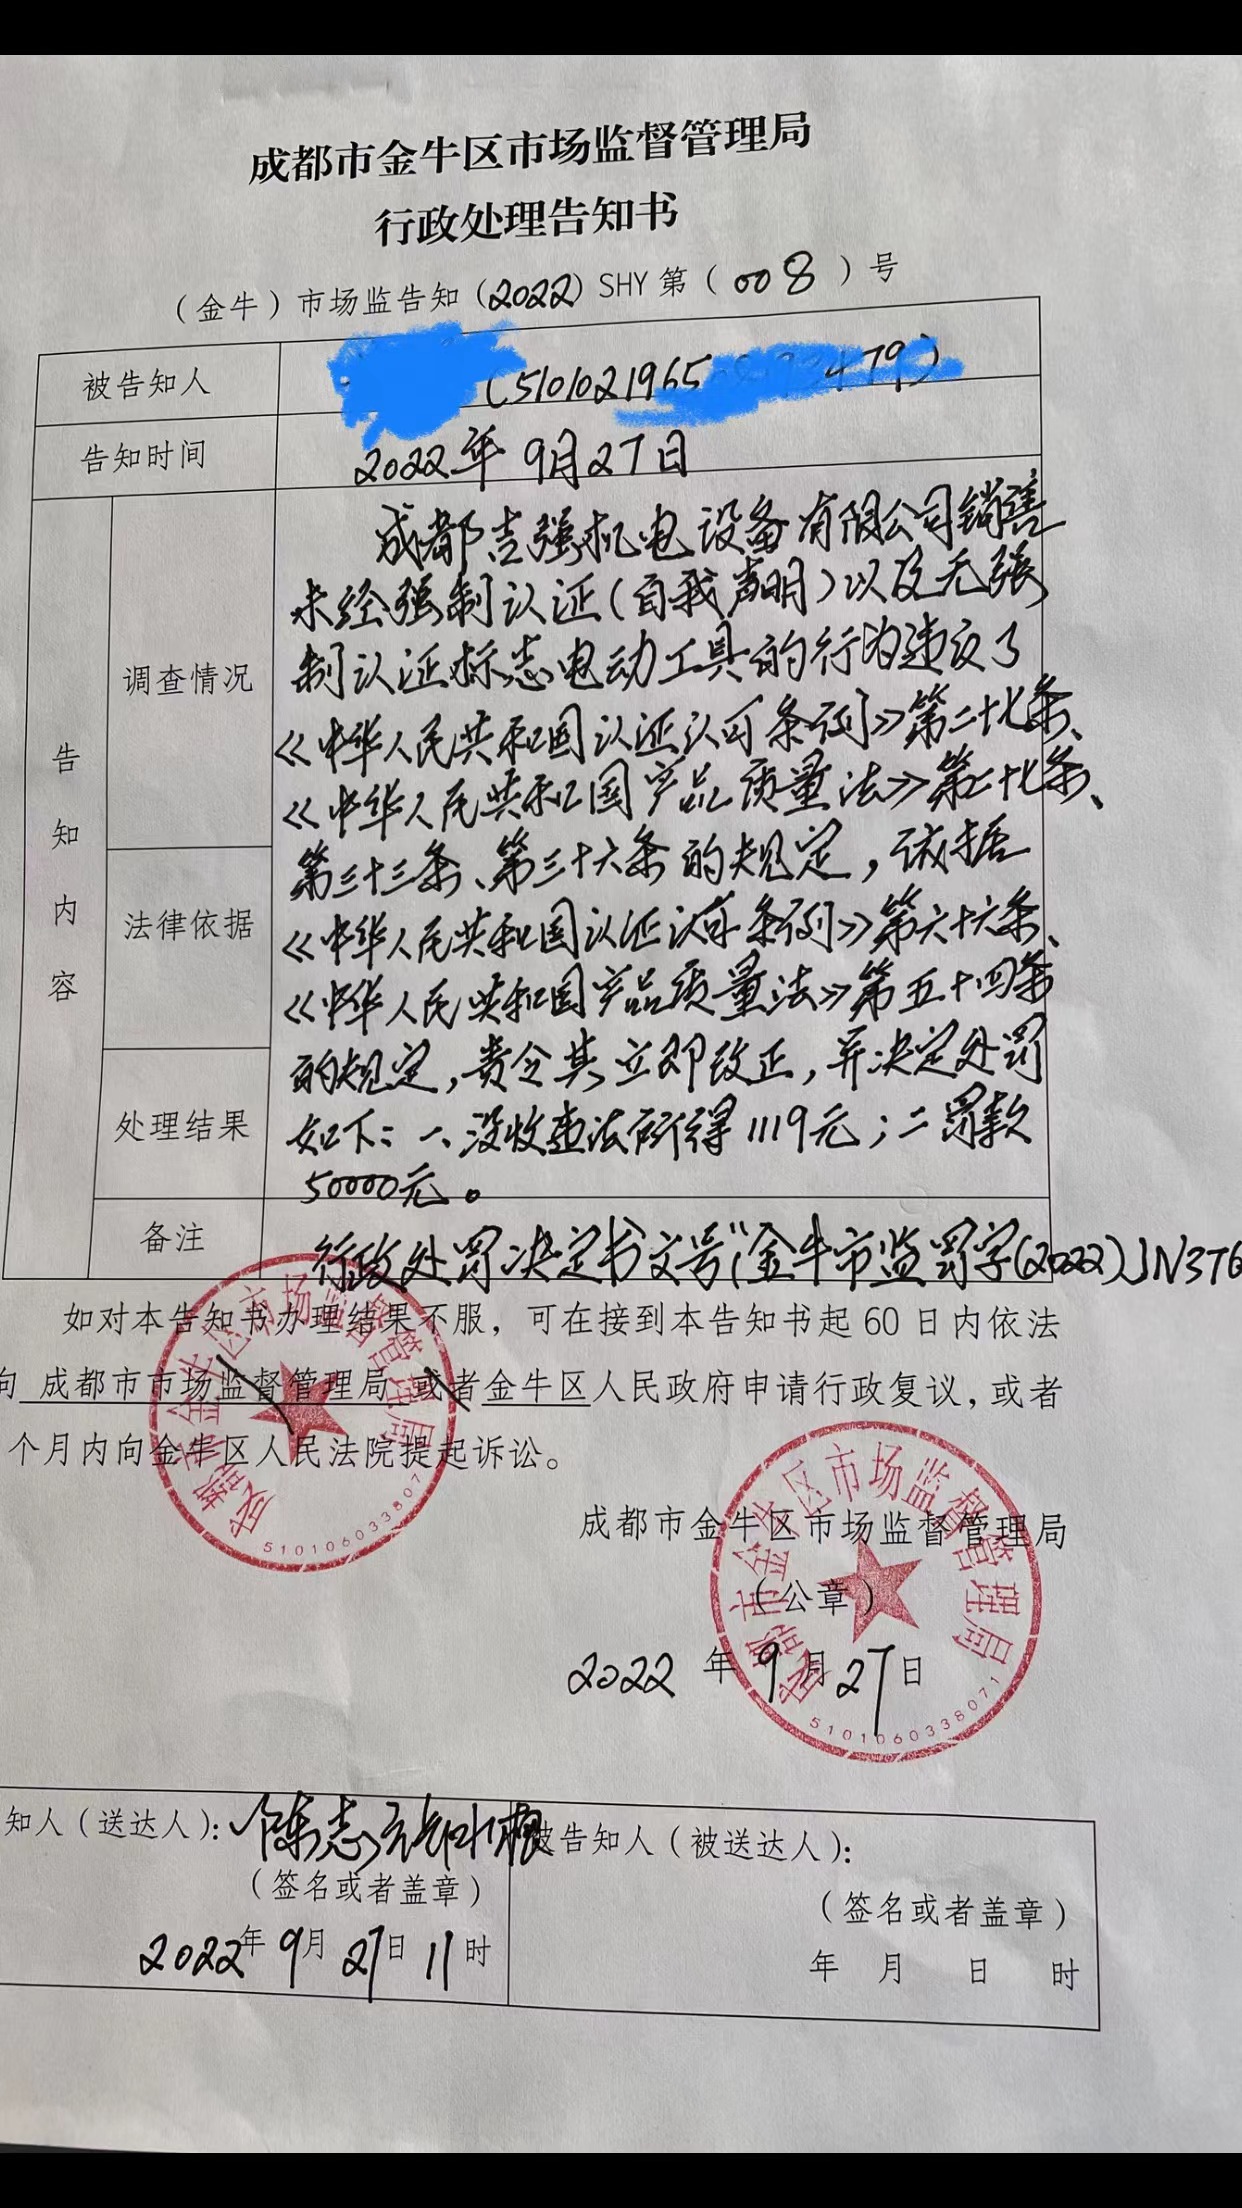 成都市金牛区市场监督管理局
行政处理告知书
（金牛）市场监告知（2022）SHY第（008）号
被告知人
（5101021965 479）
告知时间
2022年9月27日
告知内容
调查情况
法律依据
处理结果
成都吉强机电设备有限公司销售
未经强制认证（自我声明）以及无强
制认证标志电动工具的行为违反了
《中华人民共和国认证认可条例》第二十七条、
《中华人民共和国产品质量法》第二十七条、
第三十三条、第三十六条的规定，依据
《中华人民共和国认证认可条例》第六十六条、
《中华人民共和国产品质量法》第五十四条
的规定，责令其立即改正，并决定处罚
如下：一、没收违法所得1119元；二罚款
50000元。
备注
行政处罚决定书文号“金牛市监罚字（2022）JN3T6
如对本告知书办理结果不服，可在接到本告知书起60日内依法
向 成都市市场监督管理局 或者金牛区人民政府申请行政复议，或者
个月内向金牛区人民法院提起诉讼。
成都市金牛区市场监督管理局
5101060338071
成都市金牛区市场监督管理局
（公章）
2022 年 9 月 27 日
成都市金牛区市场监督管理局
5101060338071
知人（送达人）：陈志
（签名或者盖章）
2022年9月27日11时
被告知人（被送达人）：
（签名或者盖章）
年 月 日 时